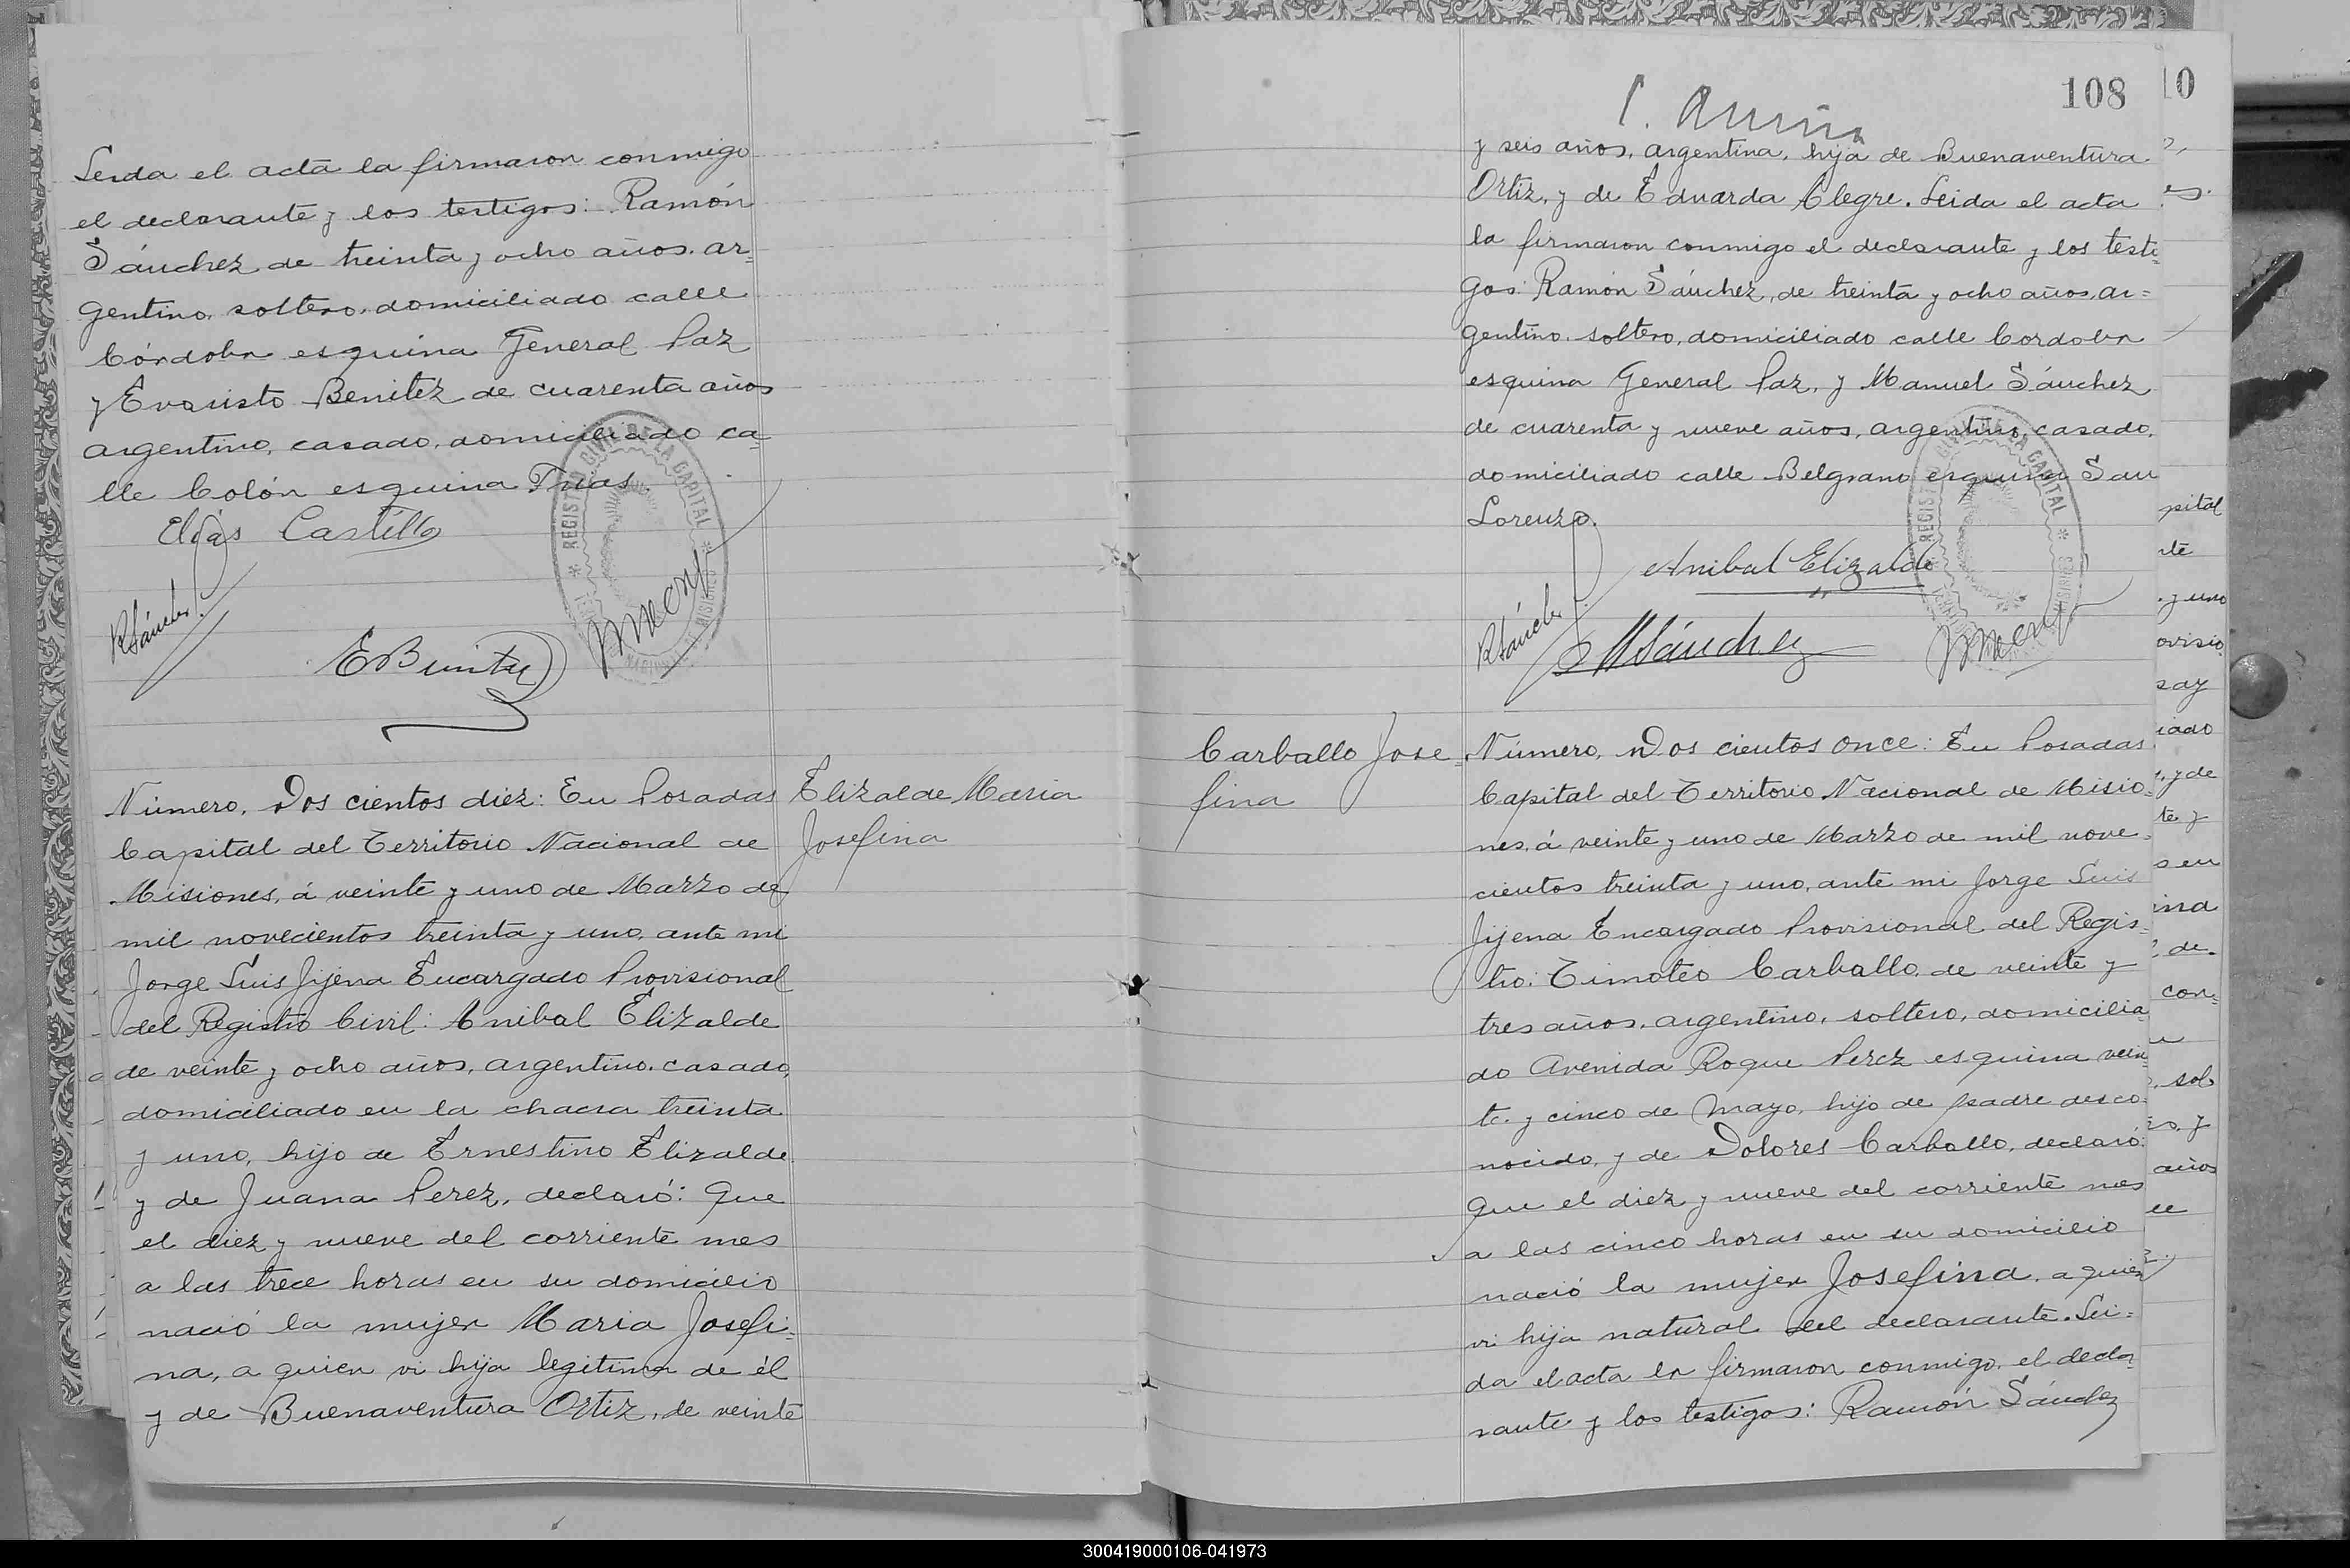 Leida el acta la firmaron conmigo
el declarante y los testigos: Ramón
Sánchez de treinta y ocho años, ar=
gentino, soltero, domiciliado calle
Córdoba esquina General Paz
y Evaristo Benitez de cuarenta años
argentino, casado, domiciliado ca
lle Colón esquina Frias.
Elías Castillo
RSánchez
EBenitez
REGISTRO CIVIL DE LA CAPITAL
Número, Dos cientos diez: En Posadas
Capital del Territorio Nacional de
Misiones, á veinte y uno de Marzo de
mil novecientos treinta y uno, ante mi
Jorge Luis Jijena Encargado Provisional
del Registro Civil: Anibal Elizalde
de veinte y ocho años, argentino, casado,
domiciliado en la chacra treinta
y uno, hijo de Ernestino Elizalde
y de Juana Perez, declaró: Que
el diez y nueve del corriente mes
a las trece horas en su domicilio
nació la mujer Maria Josefi=
na, a quien vi hija legitima de él
y de Buenaventura Ortiz, de veinte
Elizalde Maria
Josefina
108
10
y seis años, argentina, hija de Buenaventura
Ortiz, y de Eduarda Alegre. Leida el acta
la firmaron conmigo el declarante y los testi=
gos: Ramón Sánchez, de treinta y ocho años, ar=
gentino, soltero, domiciliado calle Cordoba
esquina General Paz, y Manuel Sánchez
de cuarenta y nueve años, argentino, casado,
domiciliado calle Belgrano esquina San
Lorenzo.
Anibal Elizalde
RSánchez
MSánchez
REGISTRO CIVIL DE LA CAPITAL
Carballo Jose=
fina
Número, Dos cientos once: En Posadas
Capital del Territorio Nacional de Misio=
nes, á veinte y uno de Marzo de mil nove=
cientos treinta y uno, ante mi Jorge Luis
Jijena Encargado Provisional del Regis=
tro: Timoteo Carballo, de veinte y
tres años, argentino, soltero, domicilia
do Avenida Roque Perez esquina vein
te y cinco de Mayo, hijo de padre desco=
nocido, y de Dolores Carballo, declaró:
Que el diez y nueve del corriente mes
a las cinco horas en su domicilio
nació la mujer Josefina, a quien
vi hija natural del declarante. Lei=
da el acta la firmaron conmigo, el decla=
rante y los testigos: Ramón Sánchez
300419000106-041973